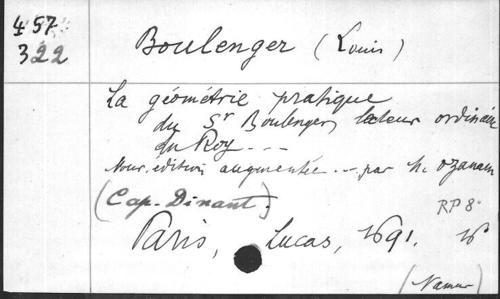 457
322
Boulenger (Louis)
La géométrie pratique
du Sr Boulenger, lecteur ordinaire
du Roy - - -
Nouv. édition augmentée -- par M. Ozanam
(Cap. Dinant.)
RP 8°
Paris, Lucas, 1691. 16°
(Namur)